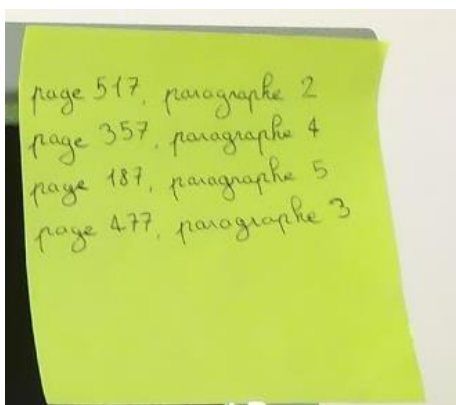 page 517, paragraphe 2
page 357, paragraphe 4
page 187, paragraphe 5
page 477, paragraphe 3